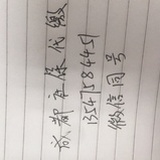 成都社保代缴
13547584451
微信同号